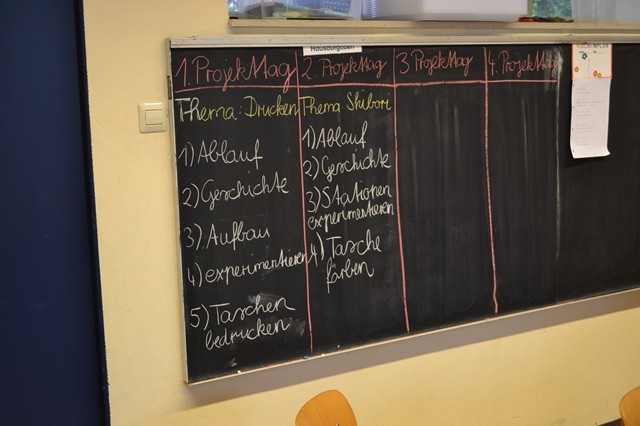 Hausaufgaben
WOCHENPLAN
1. Projekttag
Thema: Drucken
1) Ablauf
2) Geschichte
3) Aufbau
4) experimentieren
5) Taschen
bedrucken
2. Projekttag
Thema Shibori
1) Ablauf
2) Geschichte
3) Stationen
experimentieren
4) Tasche
färben
3 Projekttag
4. Projekttag